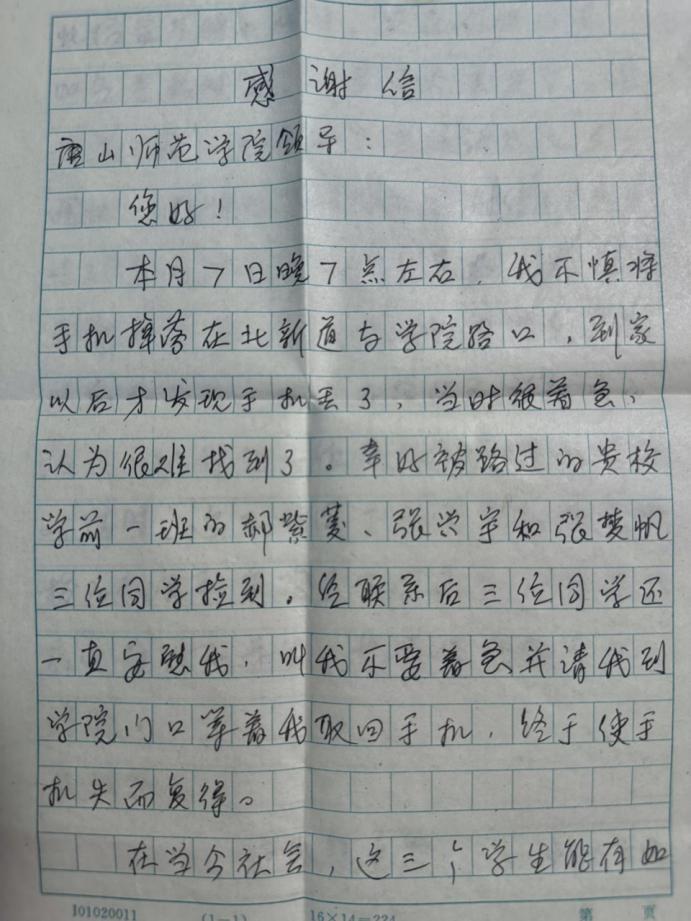 感谢信
唐山师范学院领导：
您好！
本月7日晚7点左右，我不慎将
手机掉落在北新道与学院路口，到家
以后才发现手机丢了，当时很着急，
认为很难找到了。幸好被路过的贵校
学前一班的郝紫菱、张兴宇和张梦帆
三位同学捡到。经联系后三位同学还
一直安慰我，叫我不要着急并请我到
学院门口等着我取回手机，终于使手
机失而复得。
在当今社会，这三个学生能有如
101020011 (1-1) 16×14=224 第 页